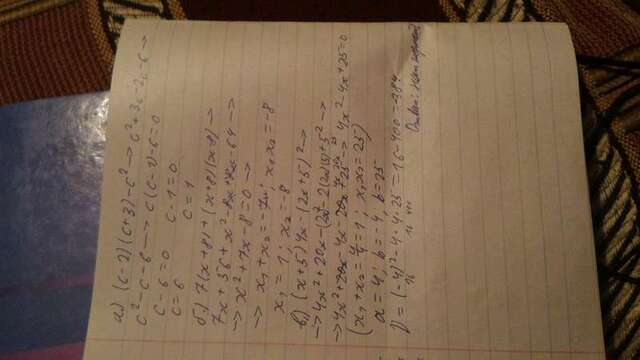 а.) (c-2)(c+3)-c² → c²+3c-2c-6 →
c²-c-6 → c(c-1)-6=0
c-6=0   c-1=0
c=6   c=1
б.) 7(x+8)+(x+8)(x-8) →
7x+56+x²-8x+8x-64 →
→ x²+7x-8=0 →
→ x₁+x₂=-7; x₁x₂=-8
x₁=1; x₂=-8
в) (x+5)4x-(2x+5)² →
→ 4x²+20x-(2x²-2(2x)(5)+5² →
→ 4x²+20x-4x-20x 25 → 4x²-4x+25=0
(x₁+x₂=4/4=1; x₁x₂=25)
a=4; b=-4, b=25
D=(-4)²-4·4·25=16-400=-384
16 16 400
Ответ: нет корней